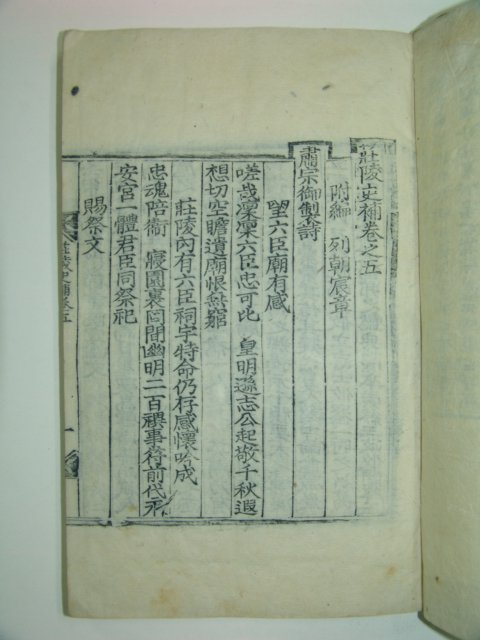 莊陵史補卷之五
附編 列朝宸章
肅宗御製詩
望六臣廟有感
嗟哉凜凜六臣忠可比 皇明遜志公起敬千秋遐
想切空瞻遺廟恨無窮
莊陵內有六臣祠宇特命仍存感懷吟成
忠魂陪衛 寢園裏 間幽明二百禩事符前代永
安宮一體君臣同祭祀
賜祭文
莊陵史補卷五
一